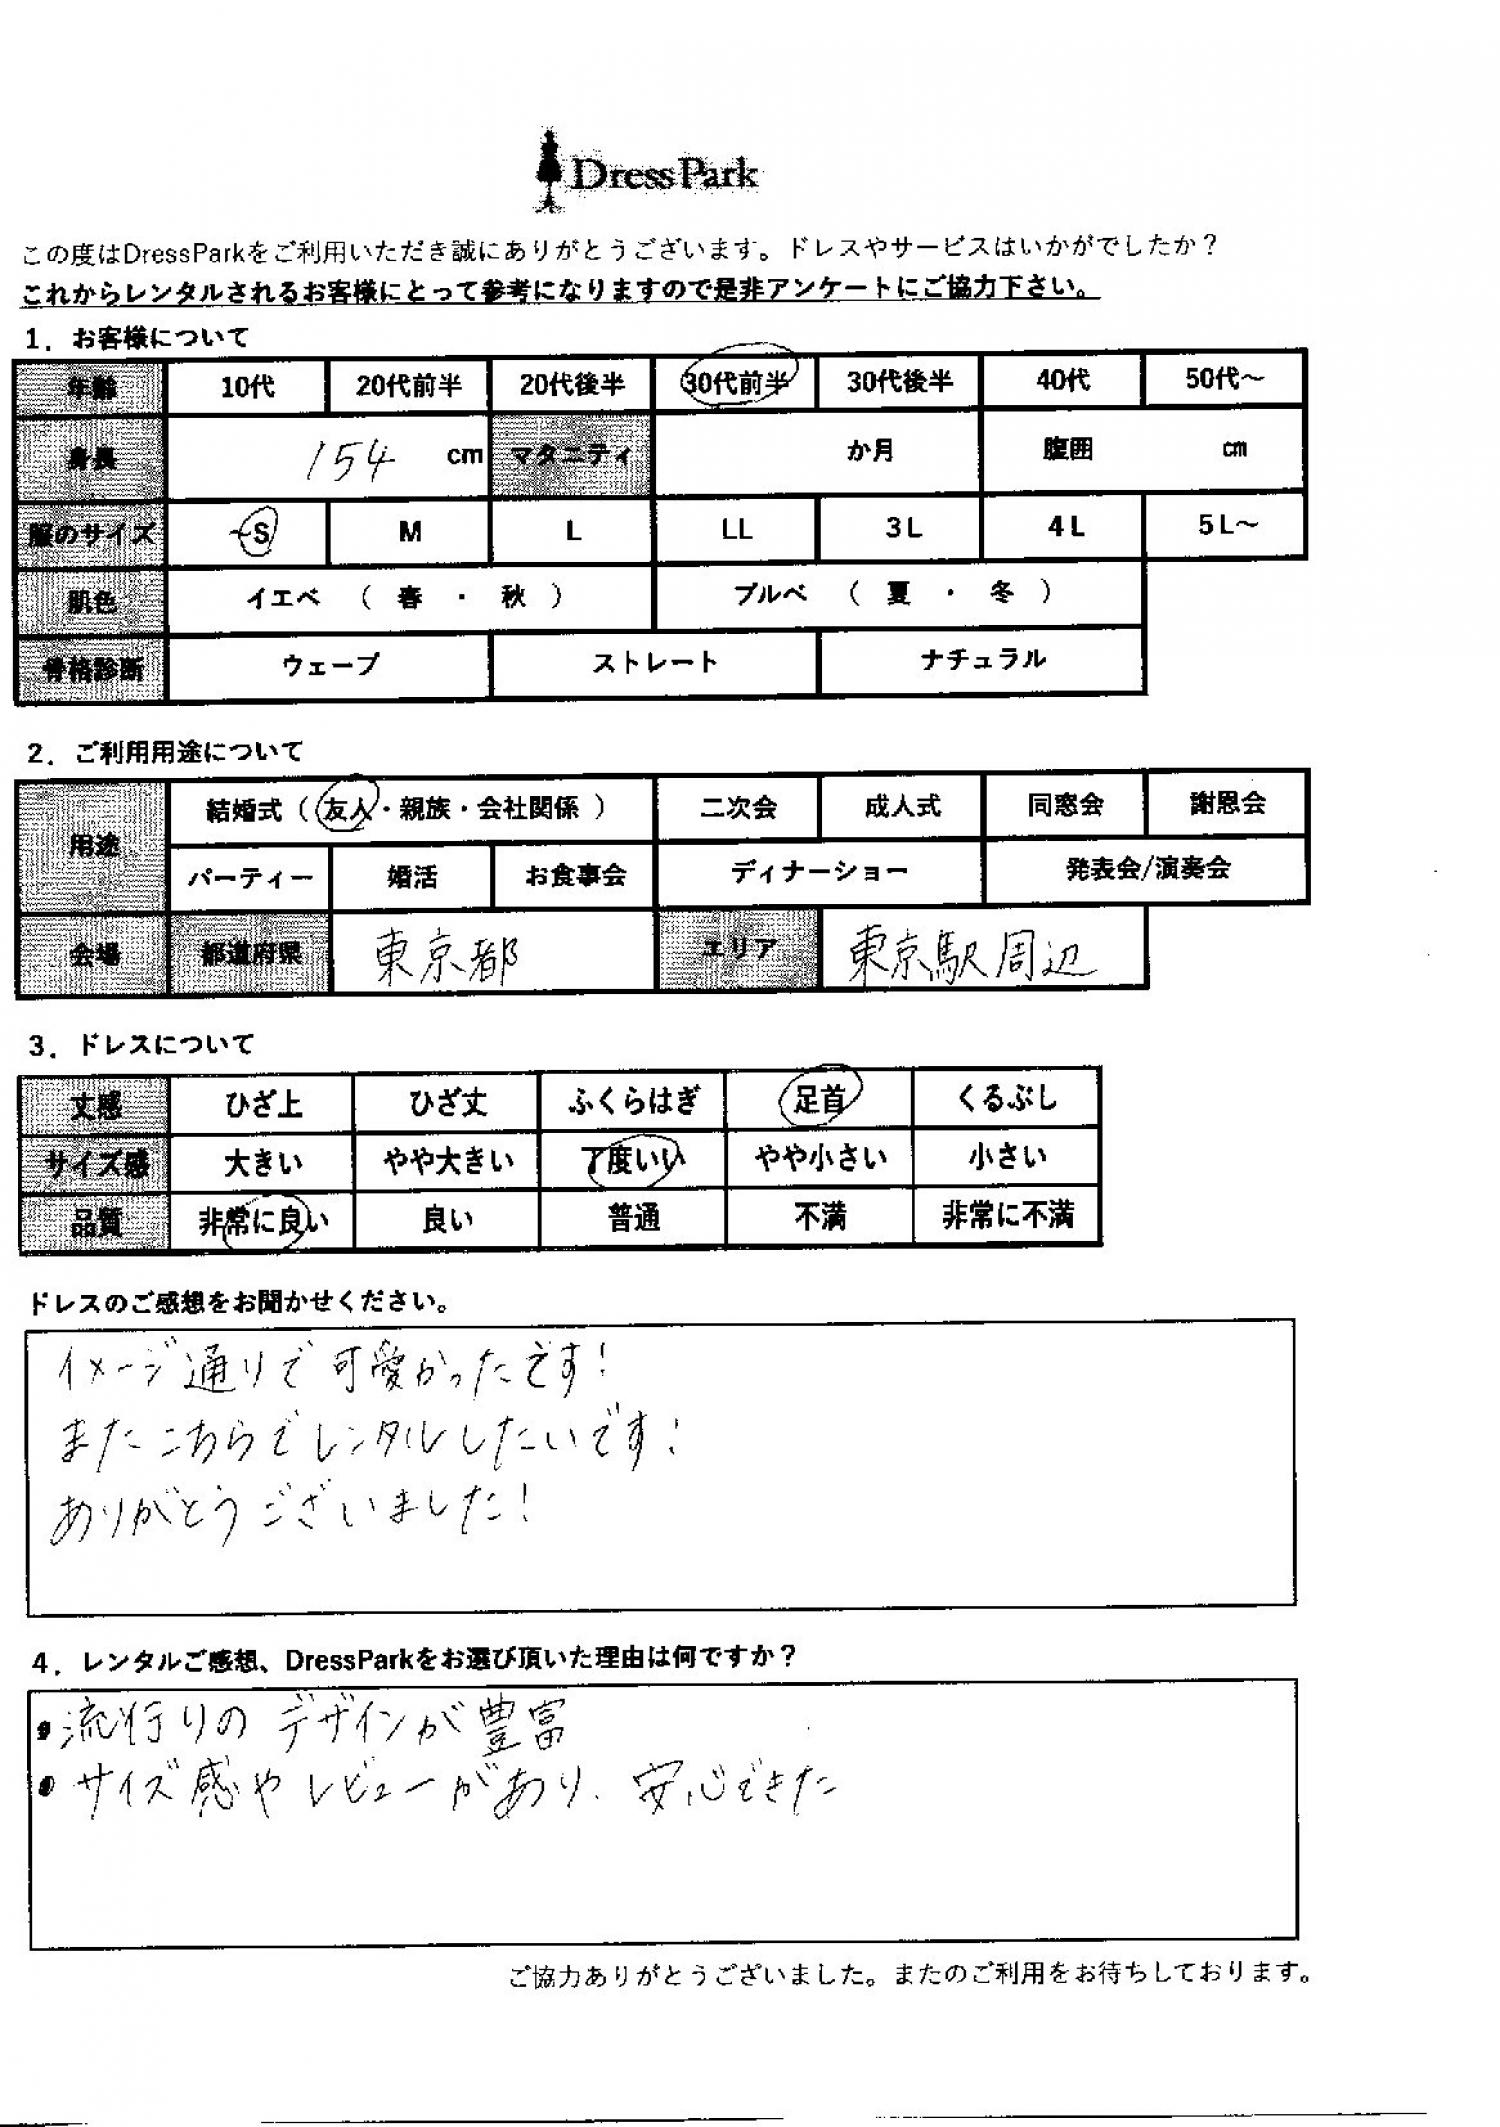 DressPark
この度はDressParkをご利用いただき誠にありがとうございます。ドレスやサービスはいかがでしたか？
これからレンタルされるお客様にとって参考になりますので是非アンケートにご協力下さい。
1．お客様について
年齢 10代 20代前半 20代後半 30代前半 30代後半 40代 50代～
身長 154 cm マタニティ か月 腹囲 cm
服のサイズ ～S M L LL 3L 4L 5L～
肌色 イエベ （ 春 ・ 秋 ） ブルベ （ 夏 ・ 冬 ）
骨格診断 ウェーブ ストレート ナチュラル
2．ご利用用途について
用途 結婚式（ 友人・親族・会社関係 ） 二次会 成人式 同窓会 謝恩会
パーティー 婚活 お食事会 ディナーショー 発表会/演奏会
会場 都道府県 東京都 エリア 東京駅周辺
3．ドレスについて
丈感 ひざ上 ひざ丈 ふくらはぎ 足首 くるぶし
サイズ感 大きい やや大きい 丁度いい やや小さい 小さい
品質 非常に良い 良い 普通 不満 非常に不満
ドレスのご感想をお聞かせください。
イメージ通りで可愛かったです！
またこちらでレンタルしたいです！
ありがとうございました！
4．レンタルご感想、DressParkをお選び頂いた理由は何ですか？
・流行りのデザインが豊富
・サイズ感やレビューがあり、安心できた
ご協力ありがとうございました。またのご利用をお待ちしております。